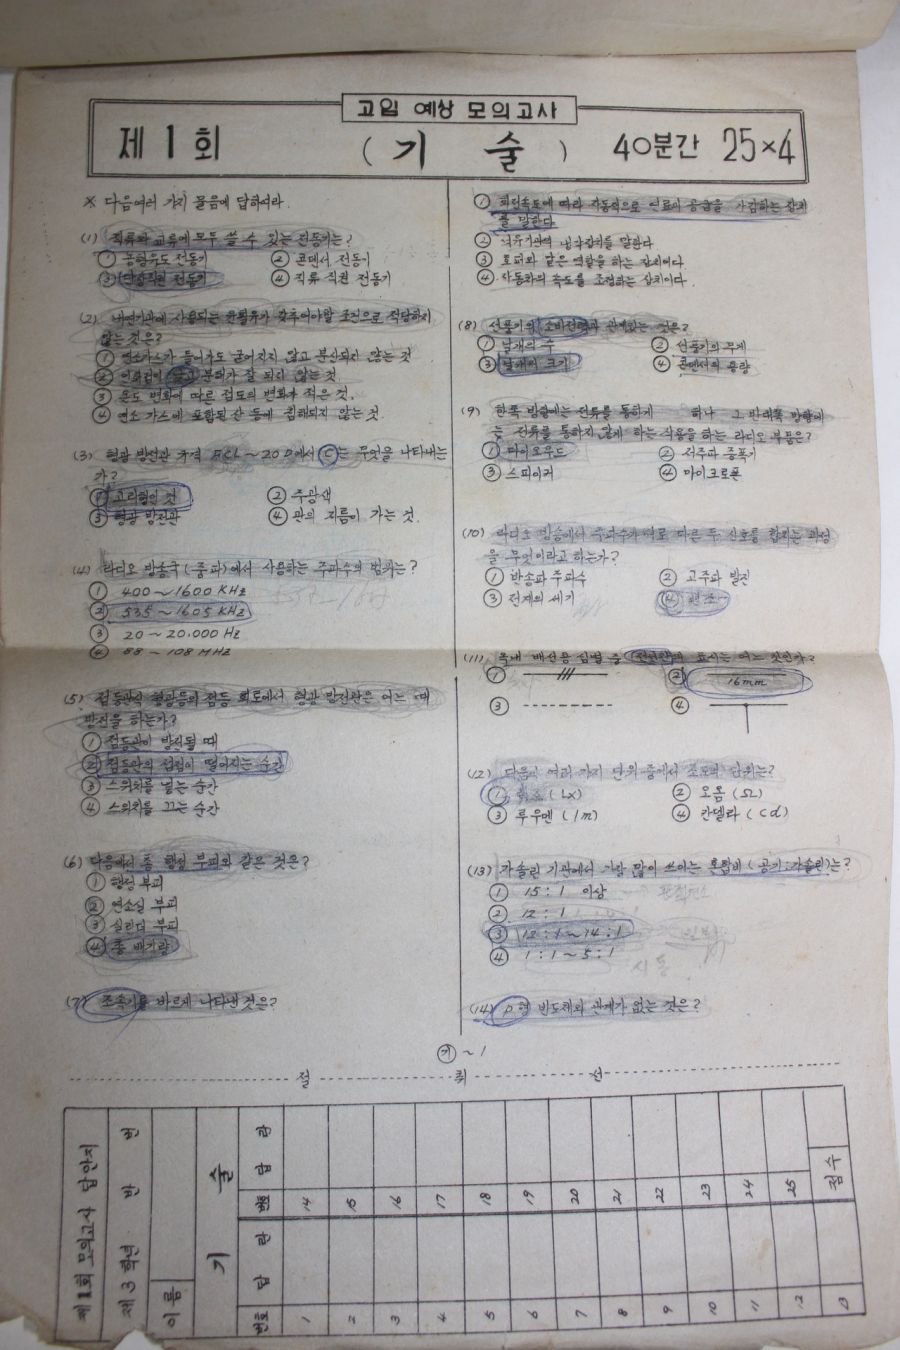 고입 예상 모의고사
제 1 회 ( 기 술 ) 40분간 25×4
※ 다음 여러 가지 물음에 답하여라.
(1) 직류와 교류에 모두 쓸 수 있는 전동기는?
① 농형유도 전동기 ② 콘덴서 전동기
③ 단상직권 전동기 ④ 직류 직권 전동기
(2) 내연기관에 사용되는 윤활유가 갖추어야할 조건으로 적당하지
않는 것은?
① 연소가스가 들어가도 굳어지지 않고 분산되지 않는 것
② 인화점이 분리가 잘 되지 않는 것
③ 온도 변화에 따른 점도의 변화가 적은 것.
④ 연소 가스에 포함된 산 등에 침해되지 않는 것.
(3) 형광 방전관 규격 FCL~20D에서 C는 무엇을 나타내는
가?
① 고리형인 것 ② 주광색
③ 형광 방전관 ④ 관의 지름이 가는 것.
(4) 라디오 방송국(중파)에서 사용하는 주파수의 범위는?
① 400~1600 KHz
② 535~1605 KHz
③ 20~20.000 Hz
④ 88~108 MHz
(5) 점등관식 형광등의 점등 회로에서 형광 방전관은 어느 때
방전을 하는가?
① 점등관이 방전될 때
② 점등관의 접점이 떨어지는 순간
③ 스위치를 넣는 순간
④ 스위치를 끄는 순간
(6) 다음에서 총 행정 부피와 같은 것은?
① 행정 부피
② 연소실 부피
③ 실린더 부피
④ 총 배기량
(7) 조속기를 바르게 나타낸 것은?
① 회전속도에 따라 자동적으로 연료의 공급을 가감하는 장치
를 말한다
② 석유기관의 냉각장치를 말한다
③ 초퍼와 같은 역할을 하는 장치이다
④ 자동차의 속도를 조정하는 장치이다.
(8) 선풍기의 소비전력과 관계있는 것은?
① 날개의 수 ② 선풍기의 무게
③ 날개의 크기 ④ 콘덴서의 용량
(9) 한쪽 방향에는 전류를 통하게 하나 그 반대쪽 방향에
는 전류를 통하지 않게 하는 작용을 하는 라디오 부품은?
① 다이오우드 ② 저주파 증폭기
③ 스피이커 ④ 마이크로폰
(10) 라디오 방송에서 주파수가 서로 다른 두 신호를 합치는 과정
을 무엇이라고 하는가?
① 반송파 주파수 ② 고주파 발진
③ 전계의 세기 ④ 변조
(11) 옥내 배선용 심벌 중 전선관의 표시는 어느 것인가?
① ②
16mm
③ ④
(12) 다음의 여러 가지 단위 중에서 조도의 단위는?
① 럭스 (Lx) ② 오옴 (Ω)
③ 루우멘 (lm) ④ 칸델라 (cd)
(13) 가솔린 기관에서 가장 많이 쓰이는 혼합비 (공기:가솔린)는?
① 15:1 이상
② 12:1
③ 12:1~14:1
④ 1:1~5:1
시동
(14) P형 반도체와 관계가 없는 것은?
㉮~1
절 취 선
제1회 모의고사 답안지
제 3 학년 반 번
이름
기 술
번호 답 란 번호 답 란
1 14
2 15
3 16
4 17
5 18
6 19
7 20
8 21
9 22
10 23
11 24
12 25
13 점수